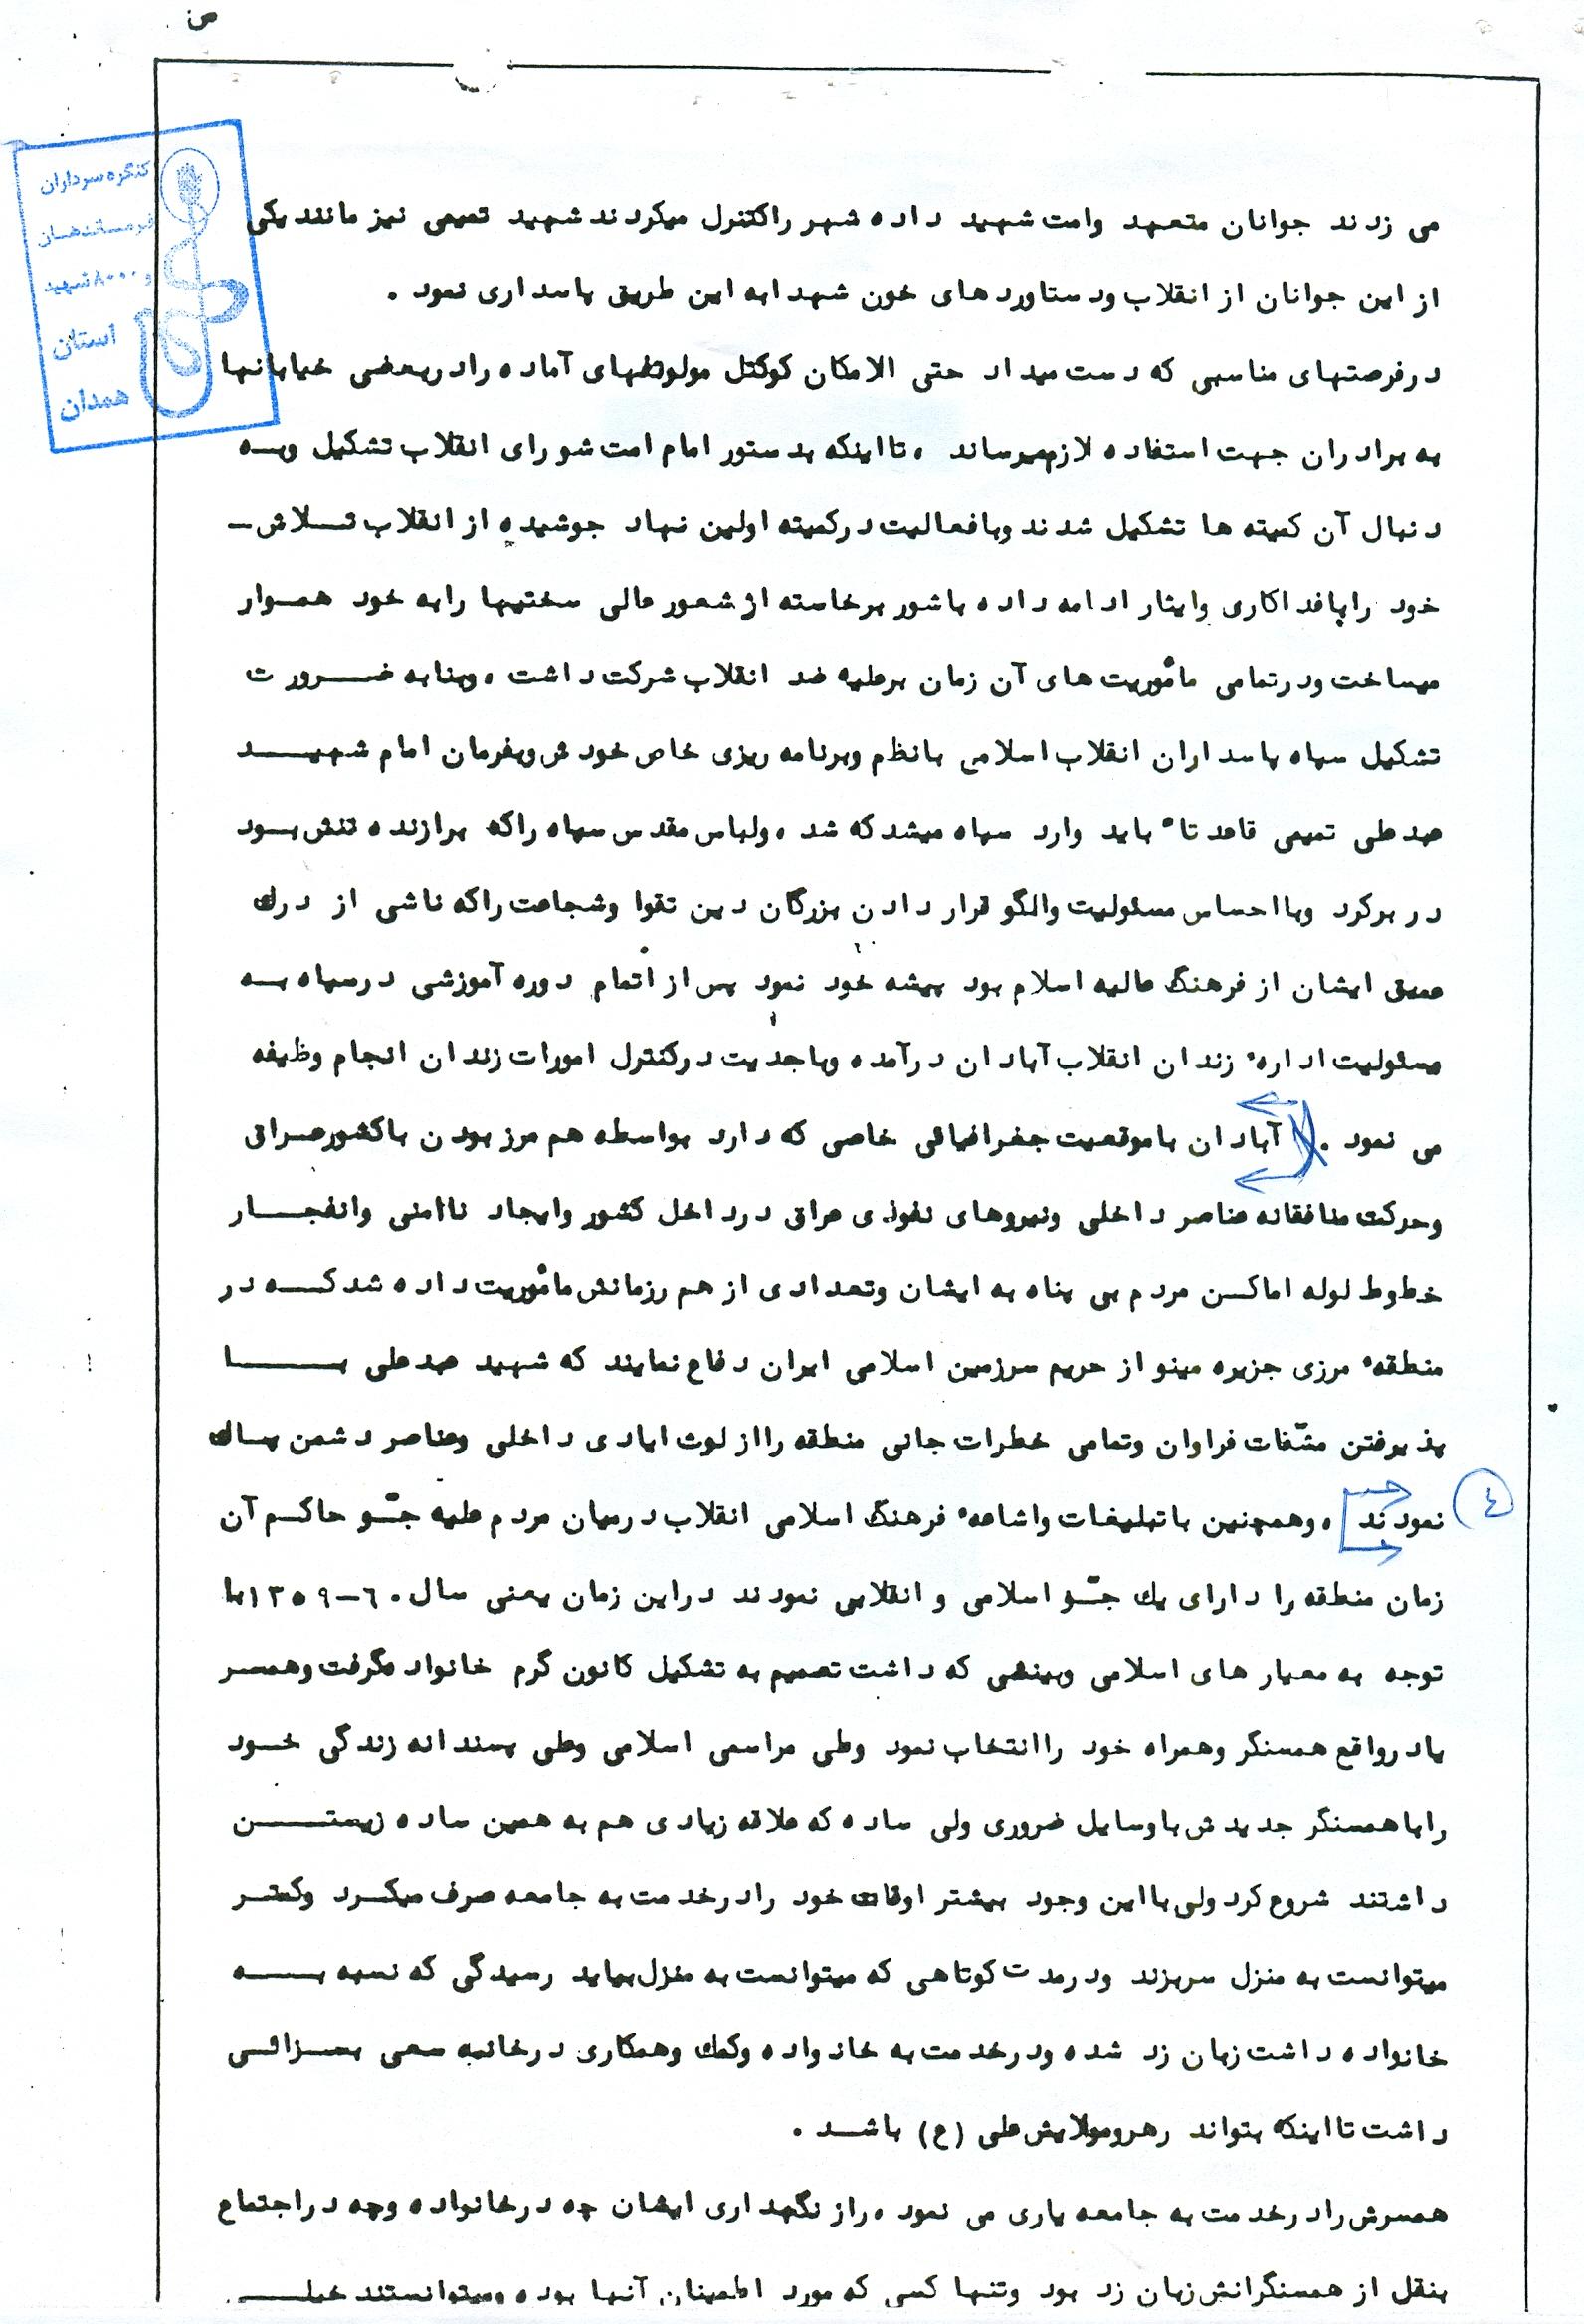 ص
کنگره سرداران
فرماندهان
و ۸۰۰۰ شهید
استان
همدان
می زدند جوانان متعهد وامت شهید داده شهر راکنترل میکردند شهید تمیمی نیز مانند یکی
از این جوانان از انقلاب ودستاوردهای خون شهدا به این طریق پاسداری نمود .
درفرصتهای مناسبی که دست میداد حتی الامکان کوکتل مولوتفهای آماده رادربعضی خیابانها
به برادران جهت استفاده لازم میرساند ، تااینکه بدستور امام امت شورای انقلاب تشکیل وبه
دنبال آن کمیته ها تشکیل شدند وبافعالیت درکمیته اولین نهاد جوشیده از انقلاب تلاش –
خود راباف‍داکاری وایثار ادامه داده باشور برخاسته از شعور عالی سختیها رابه خود هموار
میساخت ودرتمامی مأموریت های آن زمان برعلیه ضد انقلاب شرکت داشت ، وبنابه ضرورت
تشکیل سپاه پاسداران انقلاب اسلامی بانظم وبرنامه ریزی خاص خودش وبفرمان امام شهید
عبدعلی تمیمی قاعدتاً باید وارد سپاه میشد که شد ، ولباس مقدس سپاه راکه برازنده تنش بود
در برکرد وبااحساس مسئولیت والگو قرار دادن بزرگان دین تقوا وشجاعت راکه ناشی از درك
عمیق ایشان از فرهنگ عالیه اسلام بود پیشه خود نمود پس از اتمام دوره آموزشی درسپاه به
مسئولیت ادارهٔ زندان انقلاب آبادان درآمده وباجدیت درکنترل امورات زندان انجام وظیفه
می نمود . آبادان باموقعیت جغرافیائی خاصی که دارد بواسطه هم مرز بودن باکشورعراق
وحرکت منافقانه عناصر داخلی ونیروهای نفوذی عراق درداخل کشور وایجاد ناامنی وانفجار
خطوط لوله اماکن مردم بی پناه به ایشان وتعدادی از هم رزمانش مأموریت داده شد که در
منطقهٔ مرزی جزیره مینو از حریم سرزمین اسلامی ایران دفاع نمایند که شهید عبدعلی با
پذیرفتن مشقات فراوان وتمامی خطرات جانی منطقه رااز لوث ایادی داخلی وعناصر دشمن پاك
٤
نمودند ، وهمچنین باتبلیغات واشاعهٔ فرهنگ اسلامی انقلاب درمیان مردم علیه جّو حاکم آن
زمان منطقه را دارای یك جّو اسلامی و انقلابی نمودند دراین زمان یعنی سال ۶۰–۱۳۵۹ با
توجه به معیار های اسلامی وبینشی که داشت تصمیم به تشکیل کانون گرم خانواده گرفت وهمسر
یادرواقع همسنگر وهمراه خود راانتخاب نمود وطی مراسمی اسلامی وعلی پسندانه زندگی خود
راباهمسنگر جدیدش باوسایل ضروری ولی ساده که علاقه زیادی هم به همین ساده زیستن
داشتند شروع کرد ولی بااین وجود بیشتر اوقات خود رادرخدمت به جامعه صرف میکرد وکمتر
میتوانست به منزل سربزند ودرمدت کوتاهی که میتوانست به منزل بیاید رسیدگی که نسبه به
خانواده داشت زبان زد شده ودرخدمت به خانواده وکمك وهمکاری درخانه سعی بسزائی
داشت تااینکه بتواند رهرومولایش علی (ع) باشد .
همسرش رادرخدمت به جامعه یاری می نمود ، راز نگهداری ایشان چه درخانواده وچه دراجتماع
بنقل از همسنگرانش زبان زد بود وتنها کسی که مورد اطمینان آنها بوده ومیتوانستند خیلی